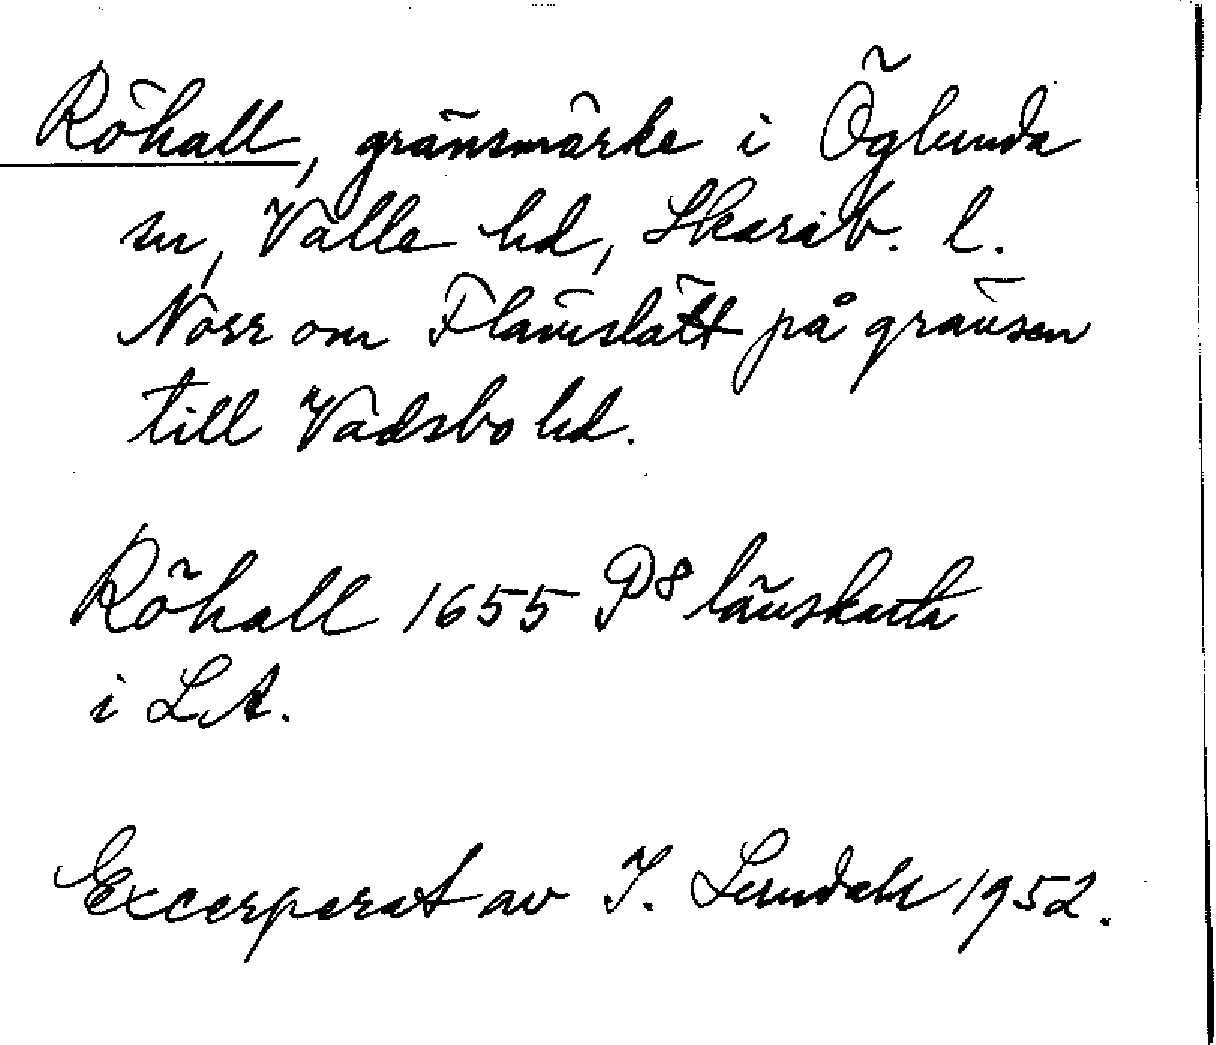 Röhall, gränsmärke i Öglunda
sn, Valle hd, Skarab. l.
Norr om Flämslätt på gränsen
till Vadsbo hd.
Röhall 1655 P8 länskarta
i LA.
Excerperat av I. Lundahl 1952.